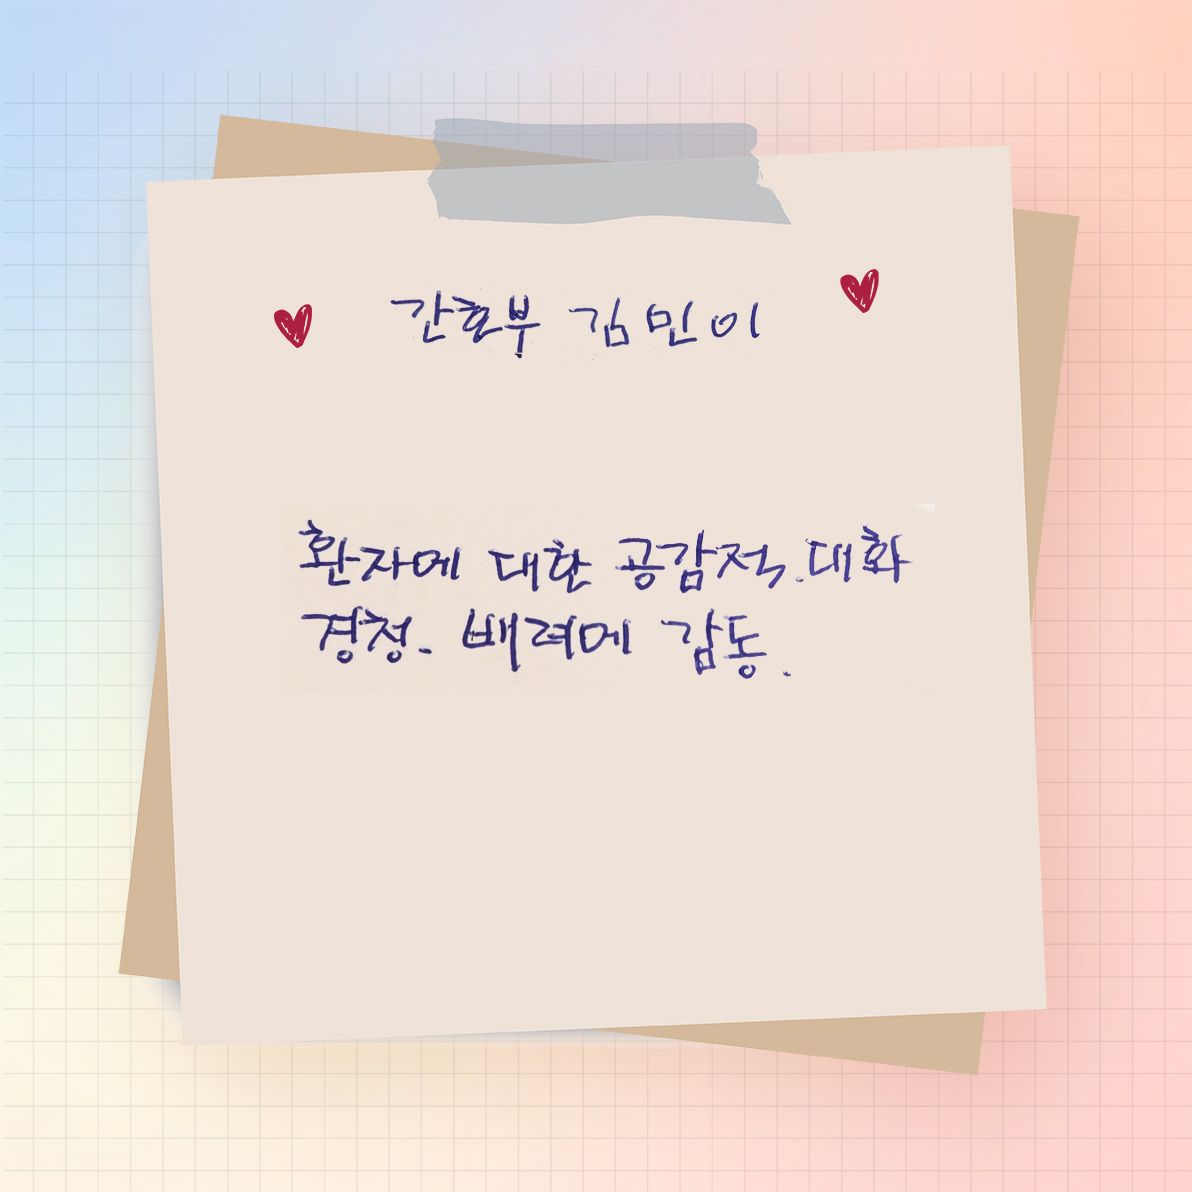 간호부 김민이
환자에 대한 공감적.대화
경청. 배려에 감동.